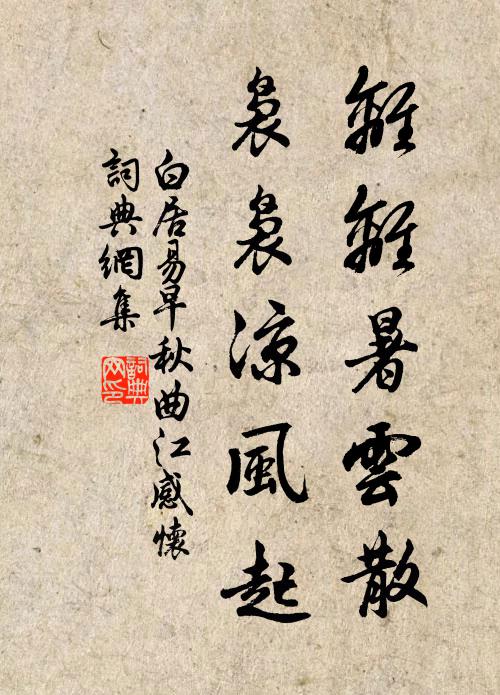 離離暑雲散
裊裊涼風起
白居易早秋曲江感懷
詞典網集
詞典網印